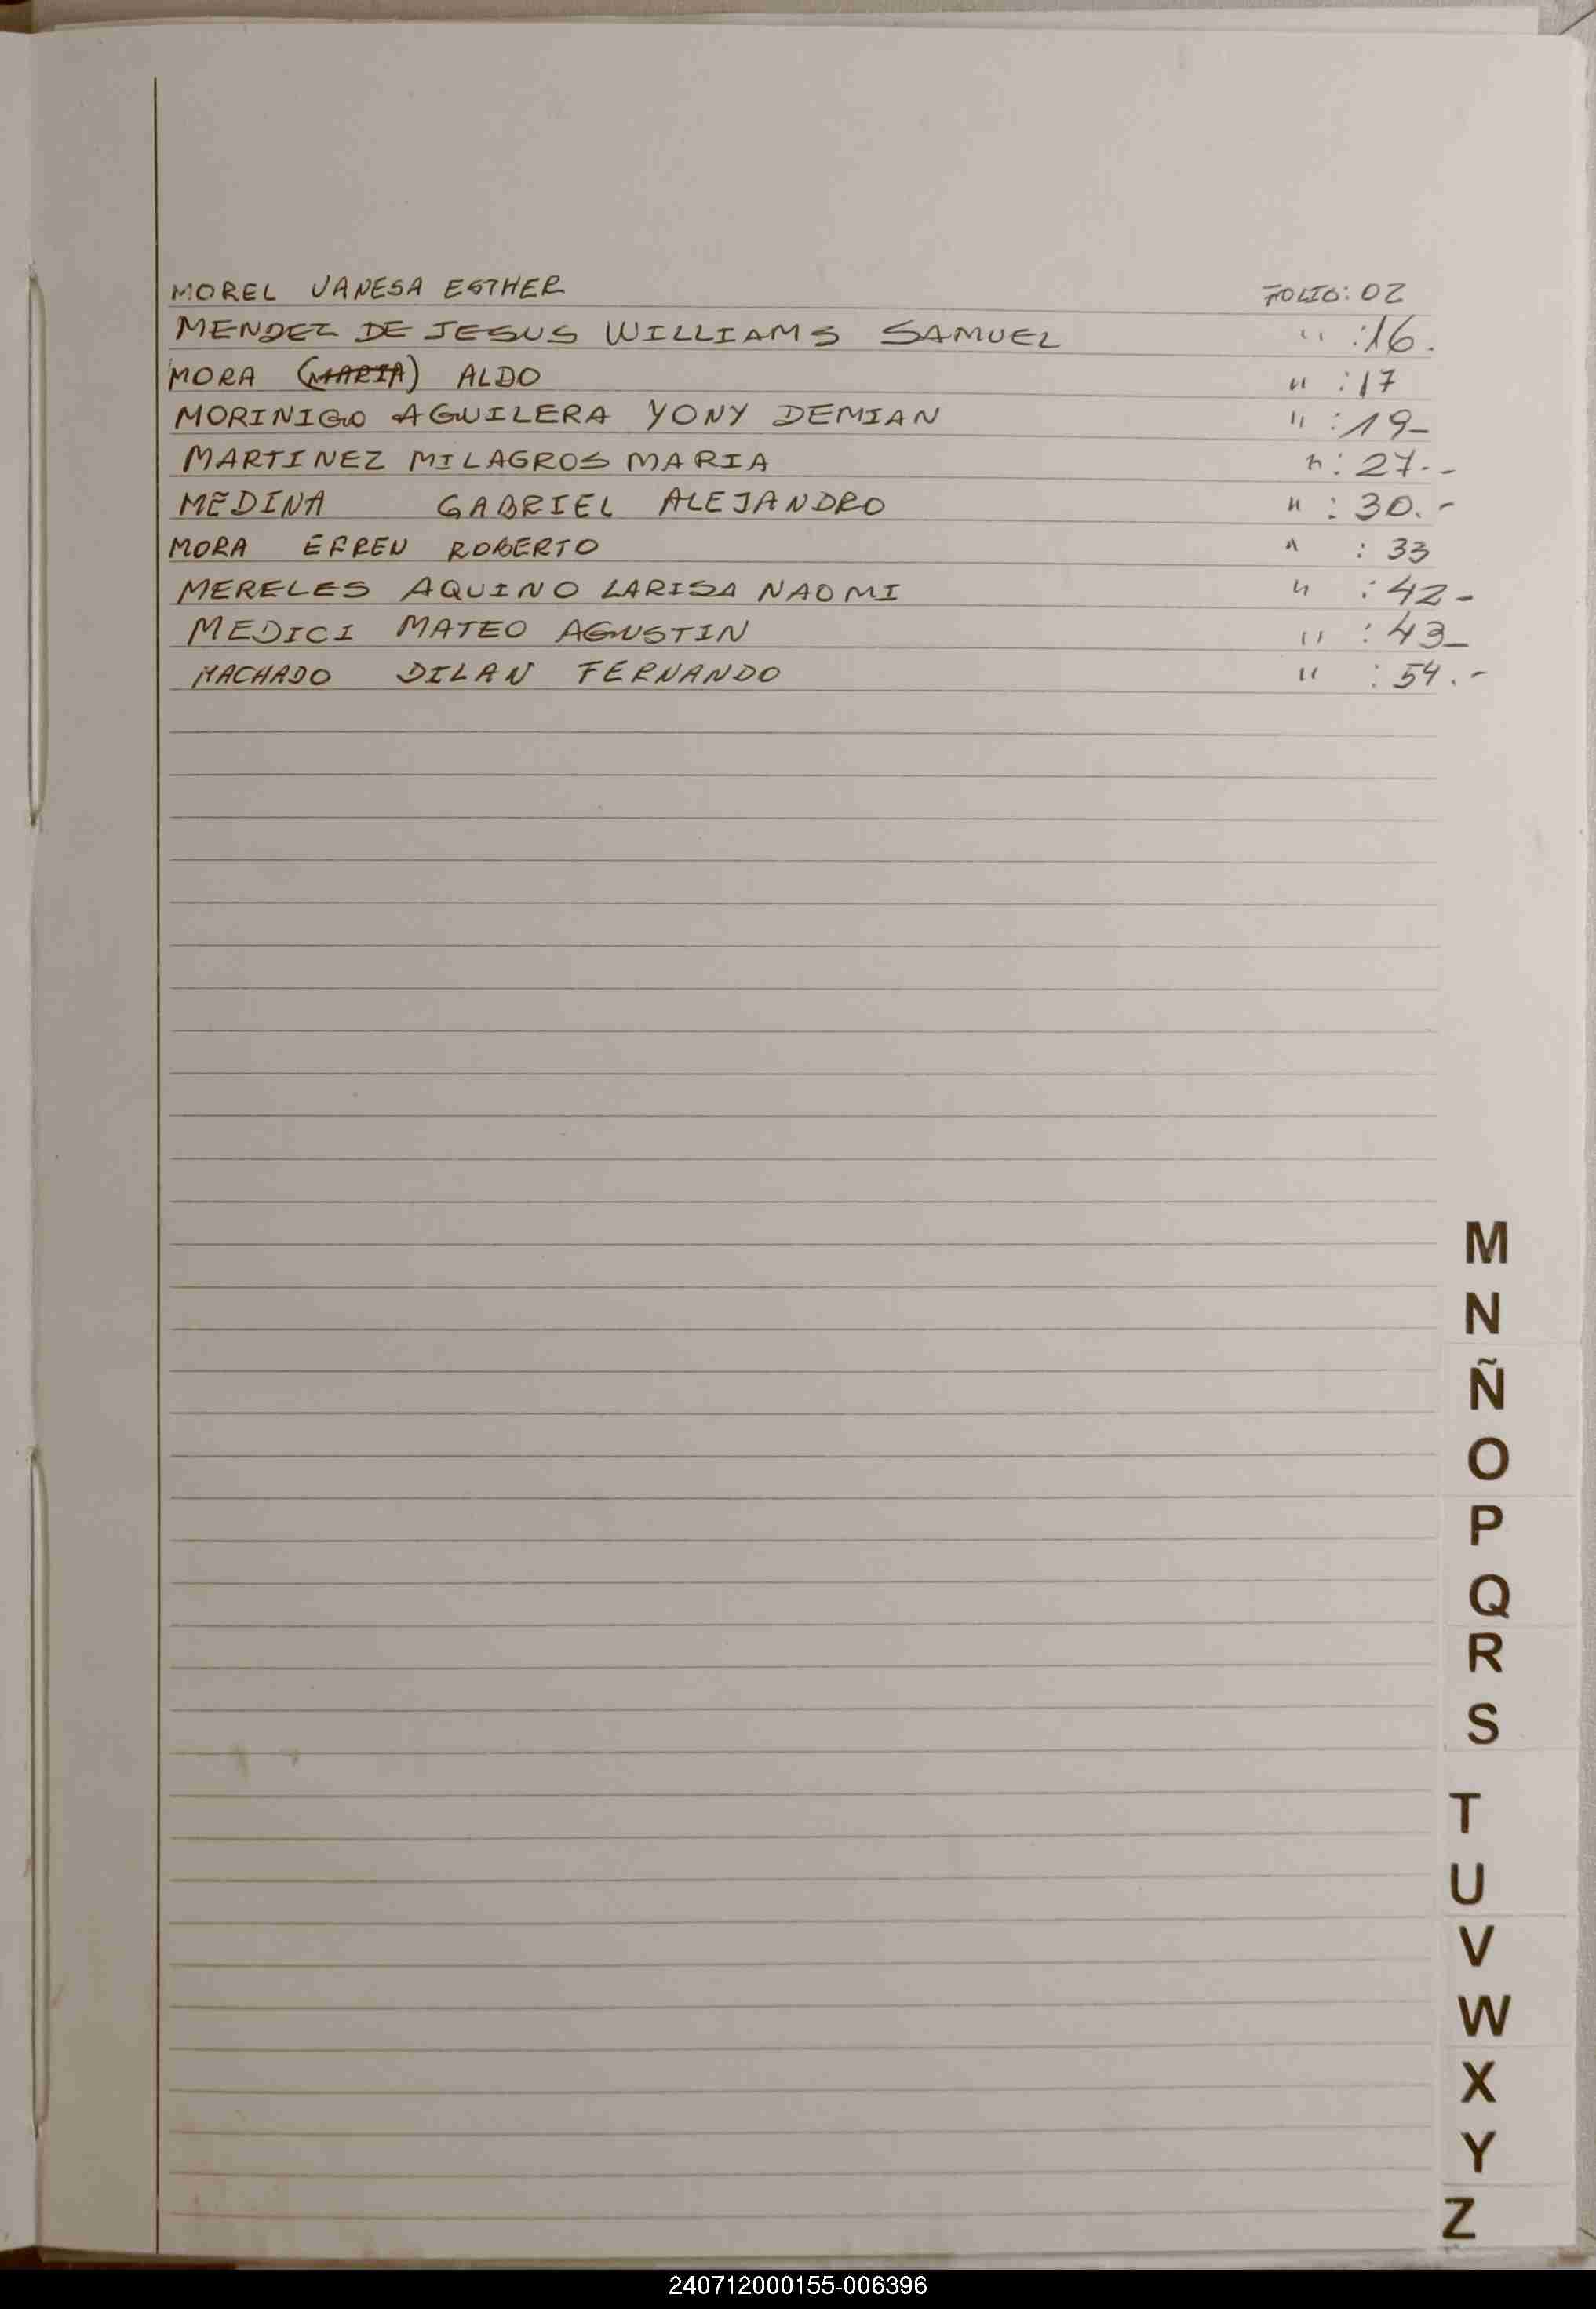 MOREL VANESA ESTHER FOLIO: 02
MENDEZ DE JESUS WILLIAMS SAMUEL " :16.
MORA (MARIA) ALDO " :17
MORINIGO AGUILERA YONY DEMIAN " :19-
MARTINEZ MILAGROS MARIA " : 27.-
MEDINA GABRIEL ALEJANDRO " : 30.-
MORA EFREN ROBERTO " : 33
MERELES AQUINO LARISA NAOMI " : 42-
MEDICI MATEO AGUSTIN " : 43-
MACHADO DILAN FERNANDO " : 54.-
M
N
Ñ
O
P
Q
R
S
T
U
V
W
X
Y
Z
240712000155-006396